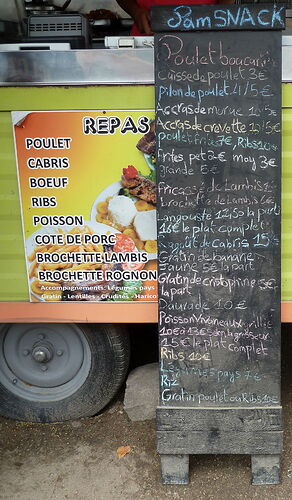 Sam SNACK
Poulet boucané
Cuisse de poulet 3€
pilon de poulet 4/5€
Accras de morue
Accras de crevette
Poulet frite 7€, Ribs 10€
Frites pet 2€ moy 3€
grande 5€
Fricassé de Lambis
Brochette de Lambis
Langouste 12,50 la part
18€ le plat complet
Ragoût de Cabris 15
Gratin de banane
Jaune 5€ la part
Gratin de cristophine
la part
Daurade 10€
Poisson Vivaneaux grillé
10€ à 13€ selon la grosseur
15€ le plat complet
Ribs 10€
Légumes pays 7€
Riz
Gratin poulet ou Ribs 10€
REPAS
POULET
CABRIS
BOEUF
RIBS
POISSON
COTE DE PORC
BROCHETTE LAMBIS
BROCHETTE ROGNON
Accompagnements: Légumes pays
Gratin - Lentilles - Crudités - Harico